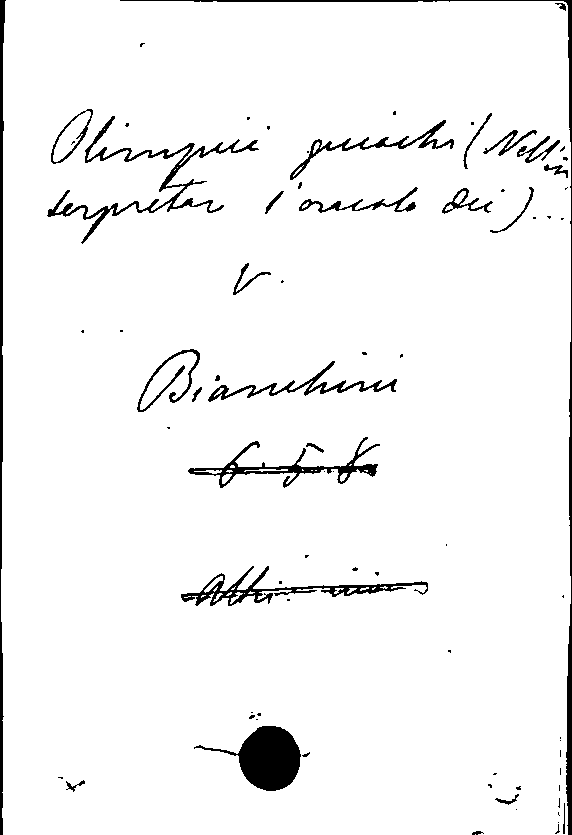 Olimpici giuochi (Nell'in
terpretar l'oracolo dei)...
V.
Bianchini
6.5.8